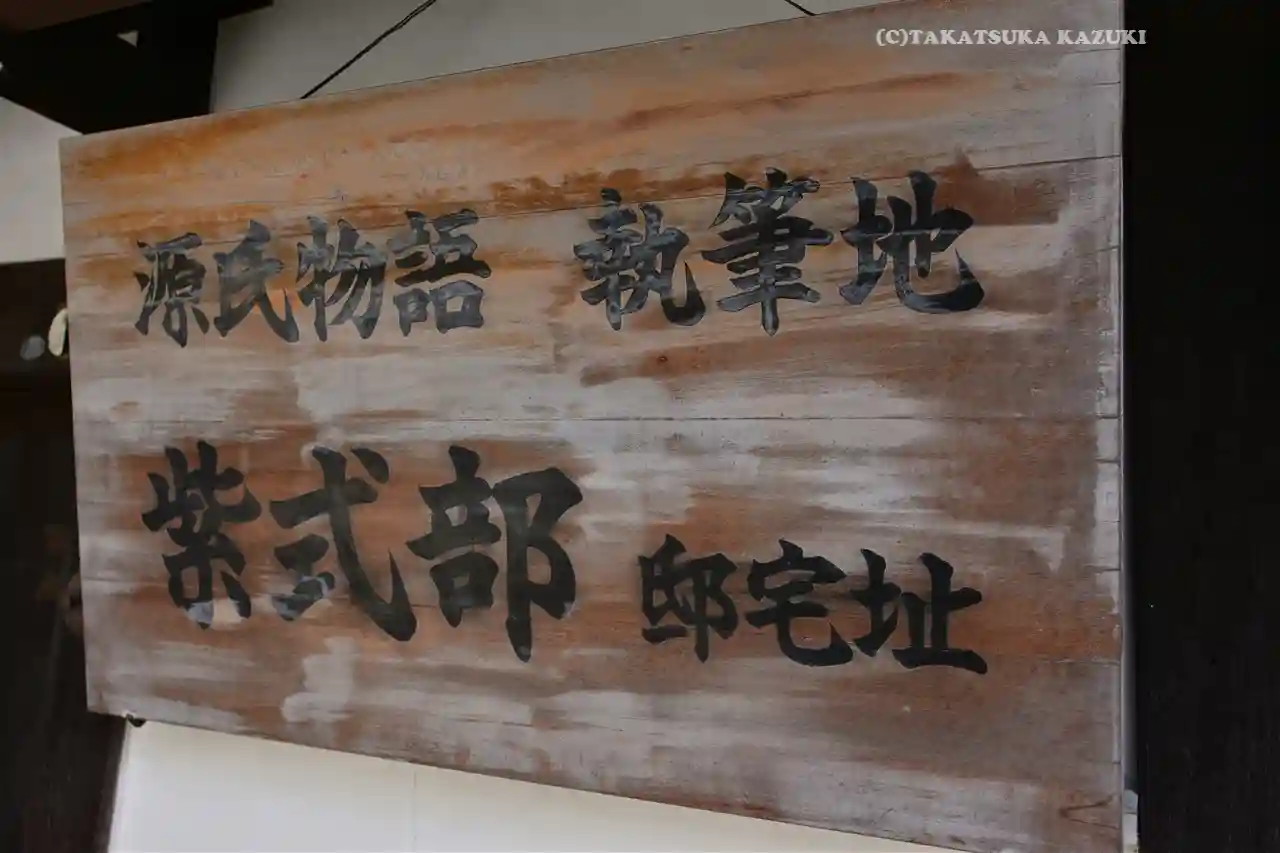 (C)TAKATSUKA KAZUKI
源氏物語 執筆地
紫式部 邸宅址